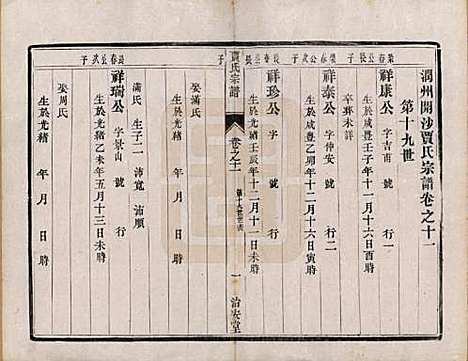 潤州開沙賈氏宗譜卷之十一
第十九世
祥康公 字吉甫 號 行一
生於咸豐壬子年十一月十六日酉時
卒葬未詳
祥泰公 字仲安 號 行二
生於咸豐乙卯年十二月十六日寅時
祥珍公 字 號 行
生於光緒壬辰年十二月十一日 時
娶滿氏
生於光緒 年 月 日 時
賈氏宗譜
卷之十一
第十九世
一
治安堂
滿氏 生子二 沛寬 沛順
祥瑞公 字景山 號 行
生於光緒乙未年五月十三日 時
娶周氏
生於光緒 年 月 日 時